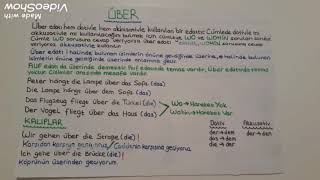 Made with
VideoShow
ÜBER
Über edatı hem dativle hem akkusativle kullanılan bir edattır. Cümlede dativle mi
akkusativle mi kullanılacağını bulmak için cümleye WO ve WOHIN soruları sorulur.
Cümle WO sorusuna cevap veriyorsa über edatı dativle, WOHIN sorusuna cevap
veriyorsa akkusativle kullanılır.
Über edatı i halinde bulunan isimlerin önüne geldiğinde üzerine, e halinde bulunan
isimlerin önüne geldiğinde üzerinde anlamını verir.
AUF edatı ile Über edatının farkı AUF edatında temas vardır, Über edatında temas
yoktur. Cisimler arasında mesafe vardır.
Peter hängt die Lampe über das Sofa. (das)
Die Lampe hängt über dem Sofa. (das)
Das Flugzeug fliegt über die Türkei (die)
Der Vogel fliegt über das Haus (das)
Wo → Hareket Yok
Wohin → Hareket Var
KALIPLAR
Wir gehen über die Straße (die)
Caddenin karşısına geçiyoruz
Ich gehe über die Brücke (die)
Köprünün üzerinden geçiyorum
Dativ
der → dem
das → dem
die → der
Akkusativ
der → den